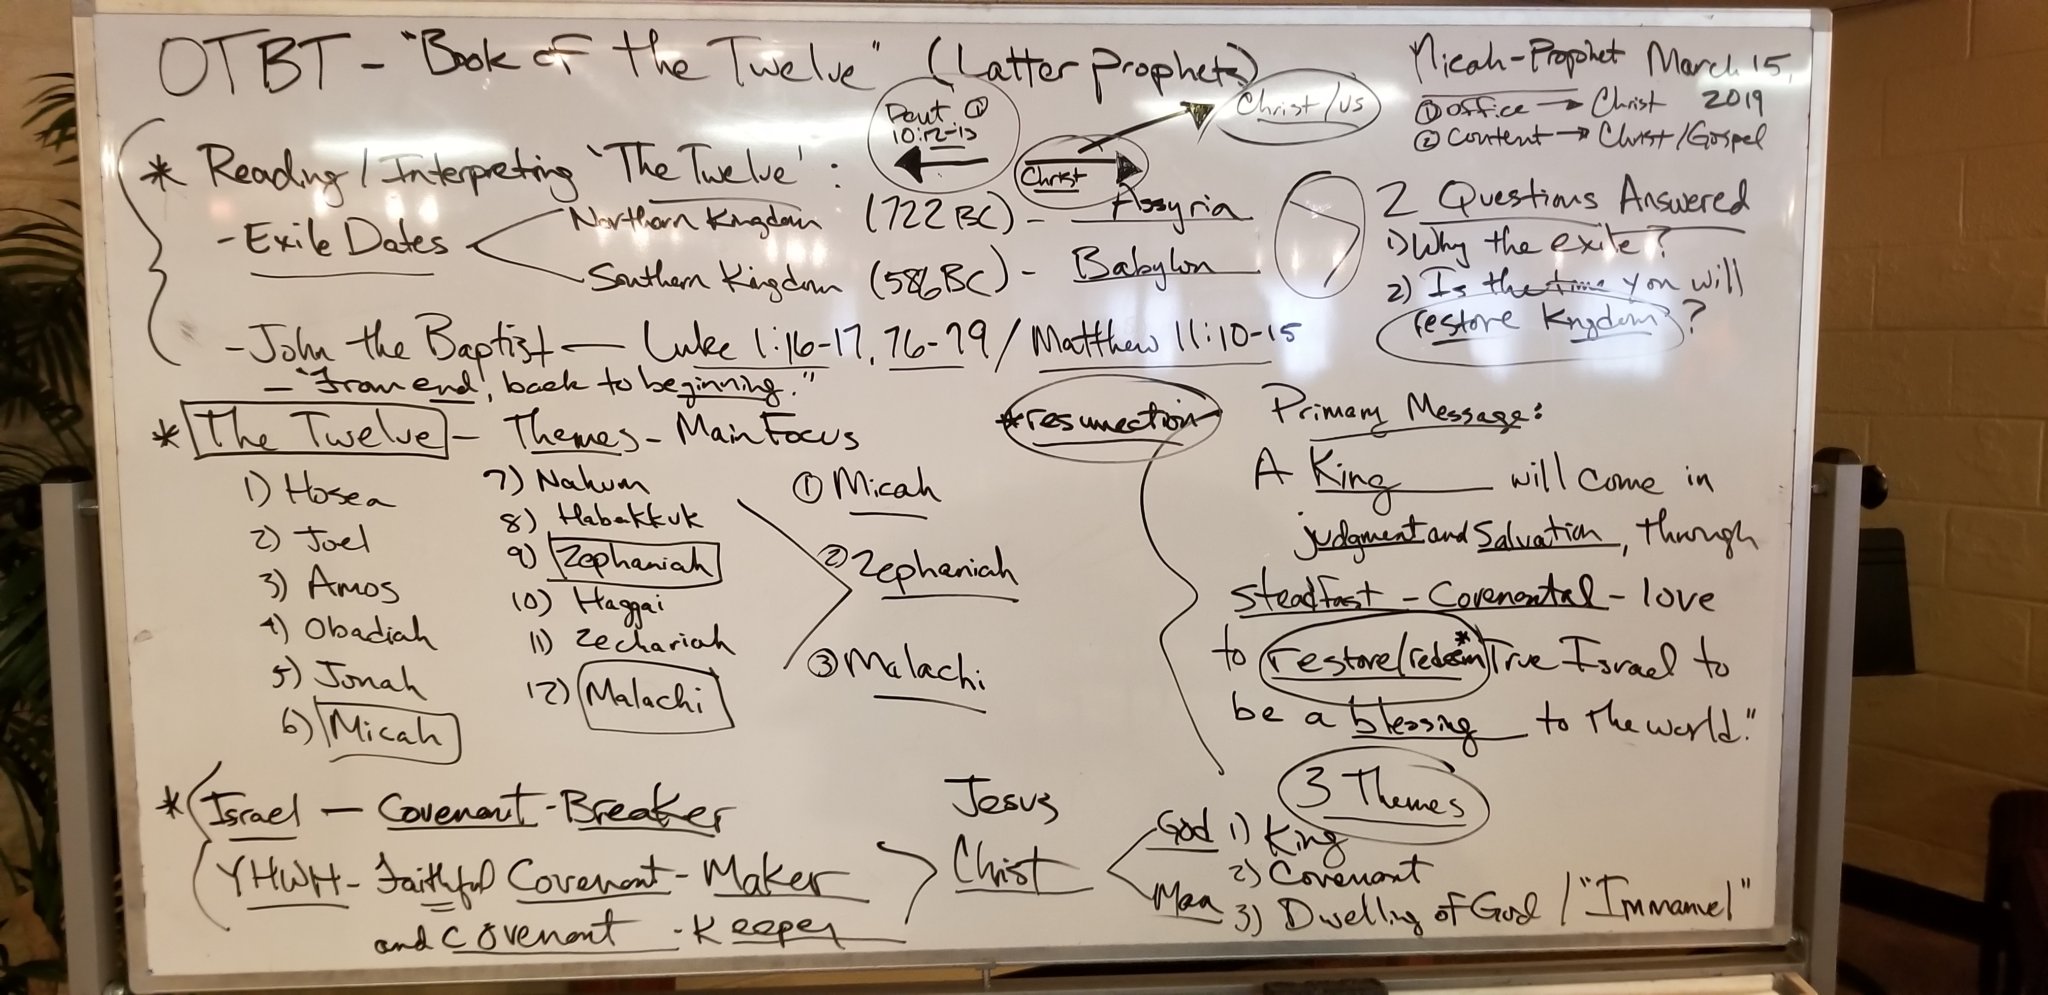 OTBT - "Book of the Twelve" (Latter Prophets)
Micah-Prophet March 15, 2019
① Office → Christ
② Content → Christ/Gospel
Deut ①
10:12-13
Christ
Christ/us
* Reading/Interpreting 'The Twelve':
- Exile Dates
Northern Kingdom (722 BC) - Assyria
Southern Kingdom (586 BC) - Babylon
2 Questions Answered
1) Why the exile?
2) Is the time you will
restore Kngdom?
- John the Baptist — Luke 1:16-17, 76-79 / Matthew 11:10-15
- "From end, back to beginning."
* The Twelve - Themes - Main Focus
1) Hosea
2) Joel
3) Amos
4) Obadiah
5) Jonah
6) Micah
7) Nahum
8) Habakkuk
9) Zephaniah
10) Haggai
11) Zechariah
12) Malachi
① Micah
② Zephaniah
③ Malachi
*resurrection
Primary Message:
A King will come in
judgment and Salvation, through
steadfast - Covenantal - love
to restore/redeem* True Israel to
be a blessing to the world."
* Israel — Covenant-Breaker
YHWH - Faithful Covenant - Maker
and Covenant - Keeper
Jesus
Christ
God
Man
3 Themes
1) King
2) Covenant
3) Dwelling of God / "Immanuel"